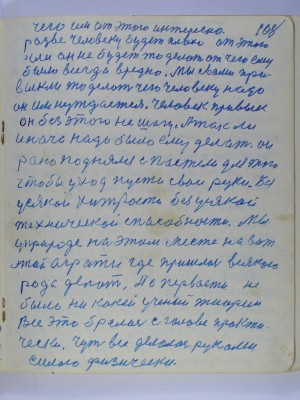 чего им от этого интересно 108
разве человеку будет плохо от этого
или он не будет то делать от чего ему
было всегда вредно. Мы с вами при-
выкли то делать чего человеку надо
он им нуждается. Человек привык
он без этого не шагу. А так ли
иначе надо было ему делать он
рано поднялся с постели для того
чтобы уход пусти свои руки. Без
всякой хитрости без всякой
технической способности. Мы
у природе на этом месте на вот
этой где пришлось всякого
рода делать. По первости не
было ни какой ученый теории
Все это бралося с головы практи-
чески. Чуть все делалося руками
силою физически.